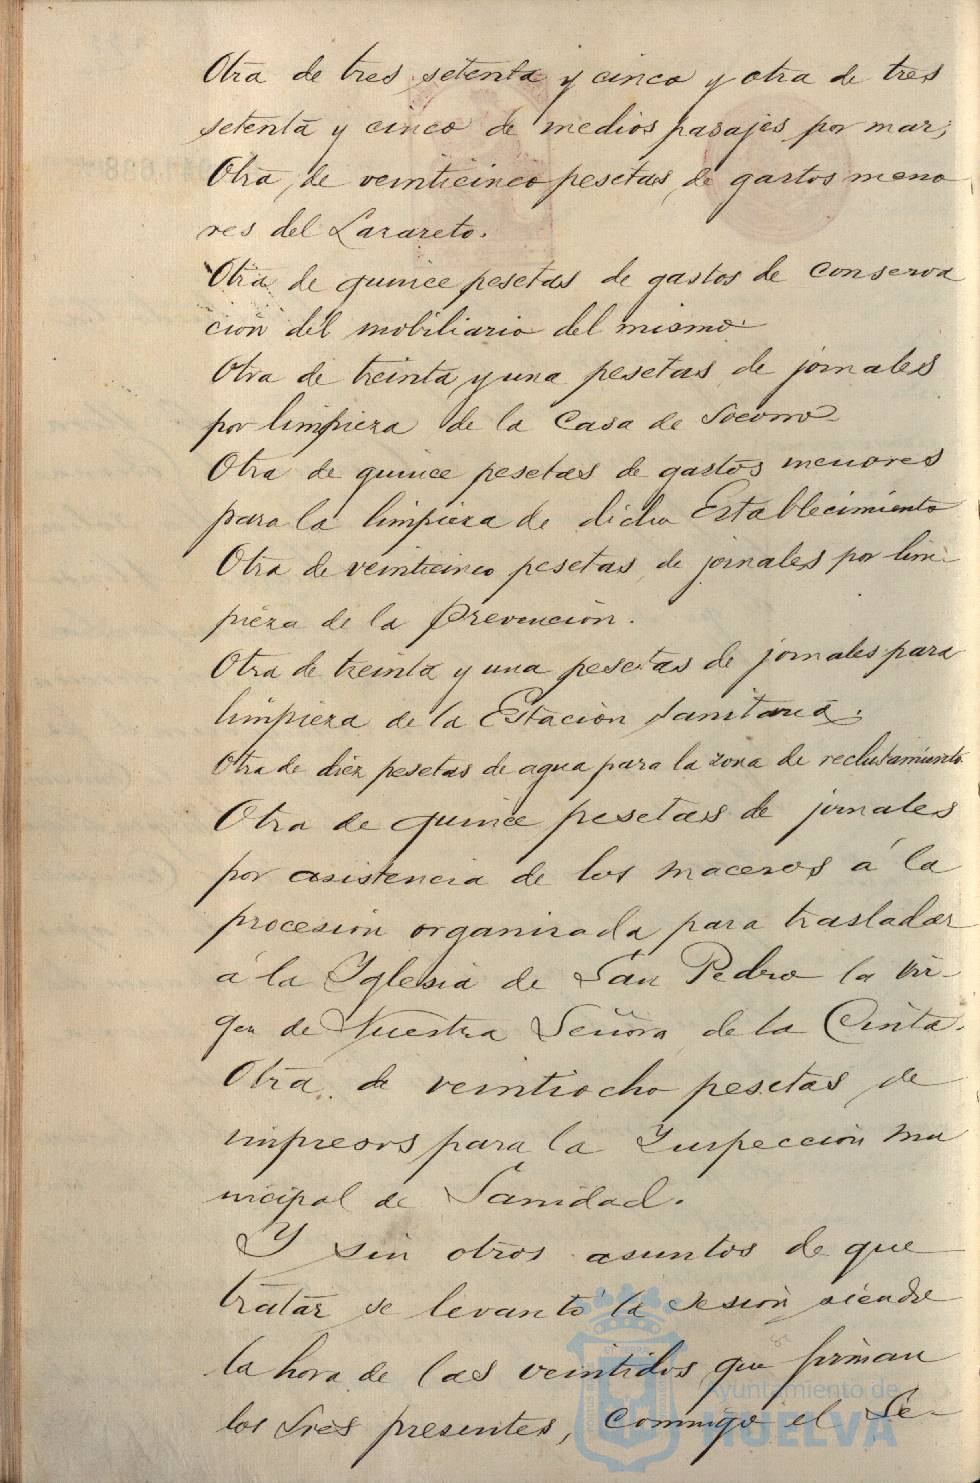 Otra de tres setenta y cinco y otra de tres
setenta y cinco de medios pasajes por mar;
Otra de veinticinco pesetas de gastos meno
res del Lazareto.
Otra de quince pesetas de gastos de conserva
ción del mobiliario del mismo.
Otra de treinta y una pesetas de jornales
por limpieza de la Casa de Socorro
Otra de quince pesetas de gastos menores
para la limpieza de dicho Establecimiento
Otra de veinticinco pesetas de jornales por lim-
pieza de la Prevención.
Otra de treinta y una pesetas de jornales para
limpieza de la Estación sanitaria.
Otra de diez pesetas de agua para la zona de reclutamiento
Otra de quince pesetas de jornales
por asistencia de los maceros á la
procesión organizada para trasladar
á la Yglesia de San Pedro la Vir-
gen de Nuestra Señora de la Cinta.
Otra de veintiocho pesetas de
impresos para la Ynspección mu
nicipal de Sanidad.
Y sin otros asuntos de que
tratar se levantó la sesión siendo
la hora de las veintidos que firman
los Sres presentes, conmigo el Se-
Ayuntamiento de
HUELVA